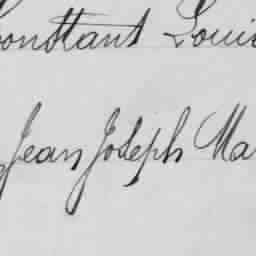 Constant Louis
Jean Joseph Ma